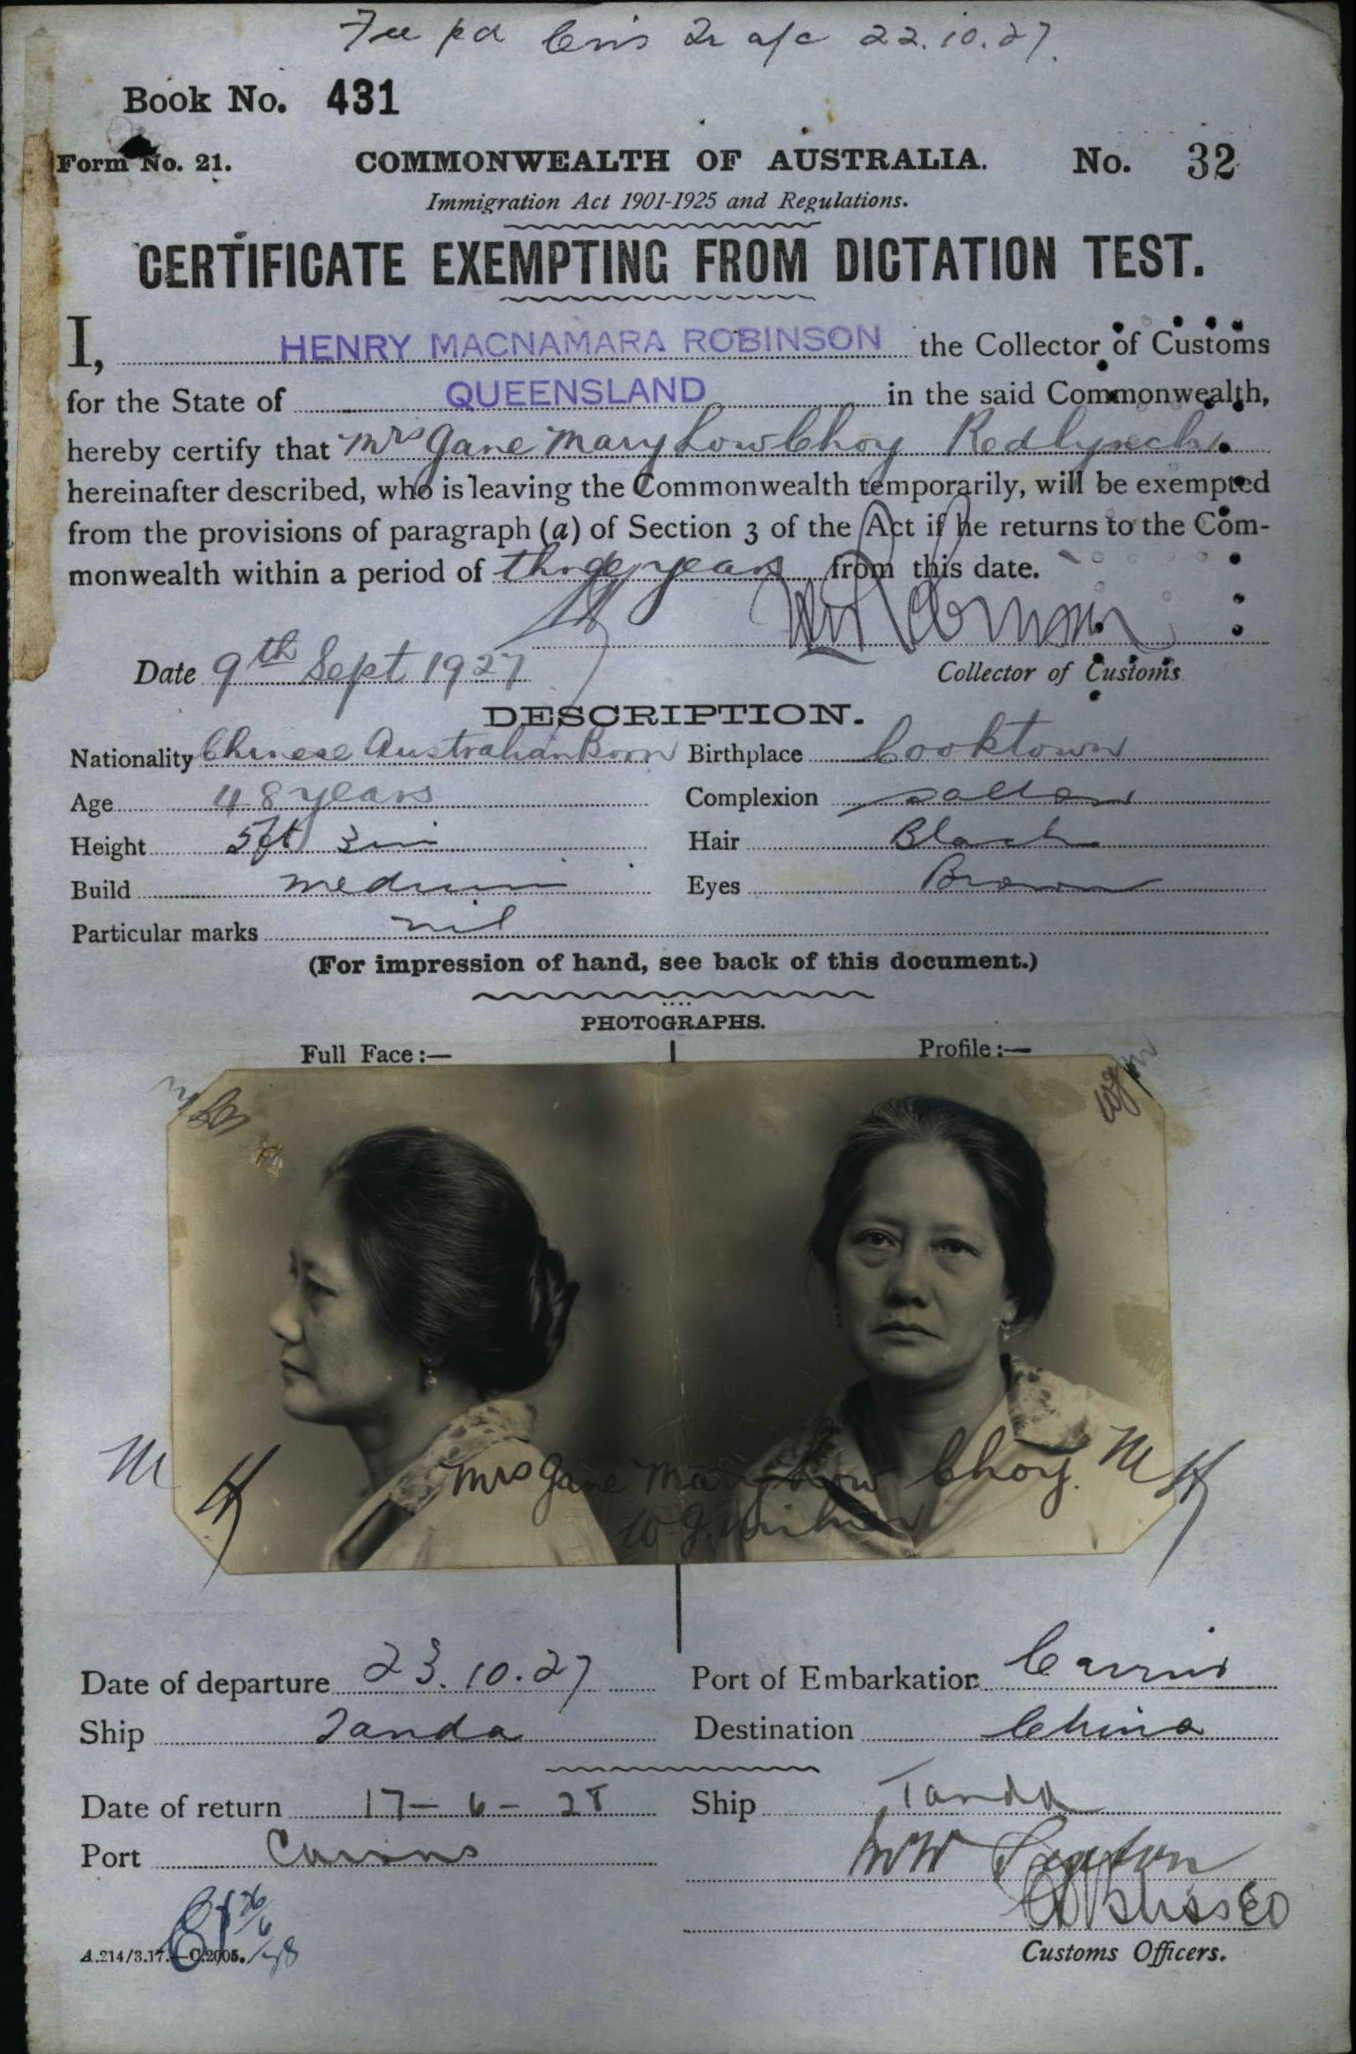 Fee pd Cns 2r a/c 22.10.27.
Book No. 431
Form No. 21. COMMONWEALTH OF AUSTRALIA. No. 32
Immigration Act 1901-1925 and Regulations.
CERTIFICATE EXEMPTING FROM DICTATION TEST.
I, HENRY MACNAMARA ROBINSON the Collector of Customs
for the State of QUEENSLAND in the said Commonwealth,
hereby certify that Mrs Jane Mary Low Choy Redlynch
hereinafter described, who is leaving the Commonwealth temporarily, will be exempted
from the provisions of paragraph (a) of Section 3 of the Act if he returns to the Com-
monwealth within a period of three years from this date.
Date 9th Sept 1927 Collector of Customs
DESCRIPTION.
Nationality Chinese Australian Born Birthplace Cooktown
Age 48 years Complexion sallow
Height 5ft 3in Hair Black
Build medium Eyes Brown
Particular marks nil
(For impression of hand, see back of this document.)
PHOTOGRAPHS.
Full Face:— Profile:—
Mrs Jane Mary Low Choy.
Date of departure 23.10.27 Port of Embarkation Cairns
Ship Tanda Destination China
Date of return 17-6-28 Ship Tanda
Port Cairns
A.214/3.17.—C.2005.
Customs Officers.